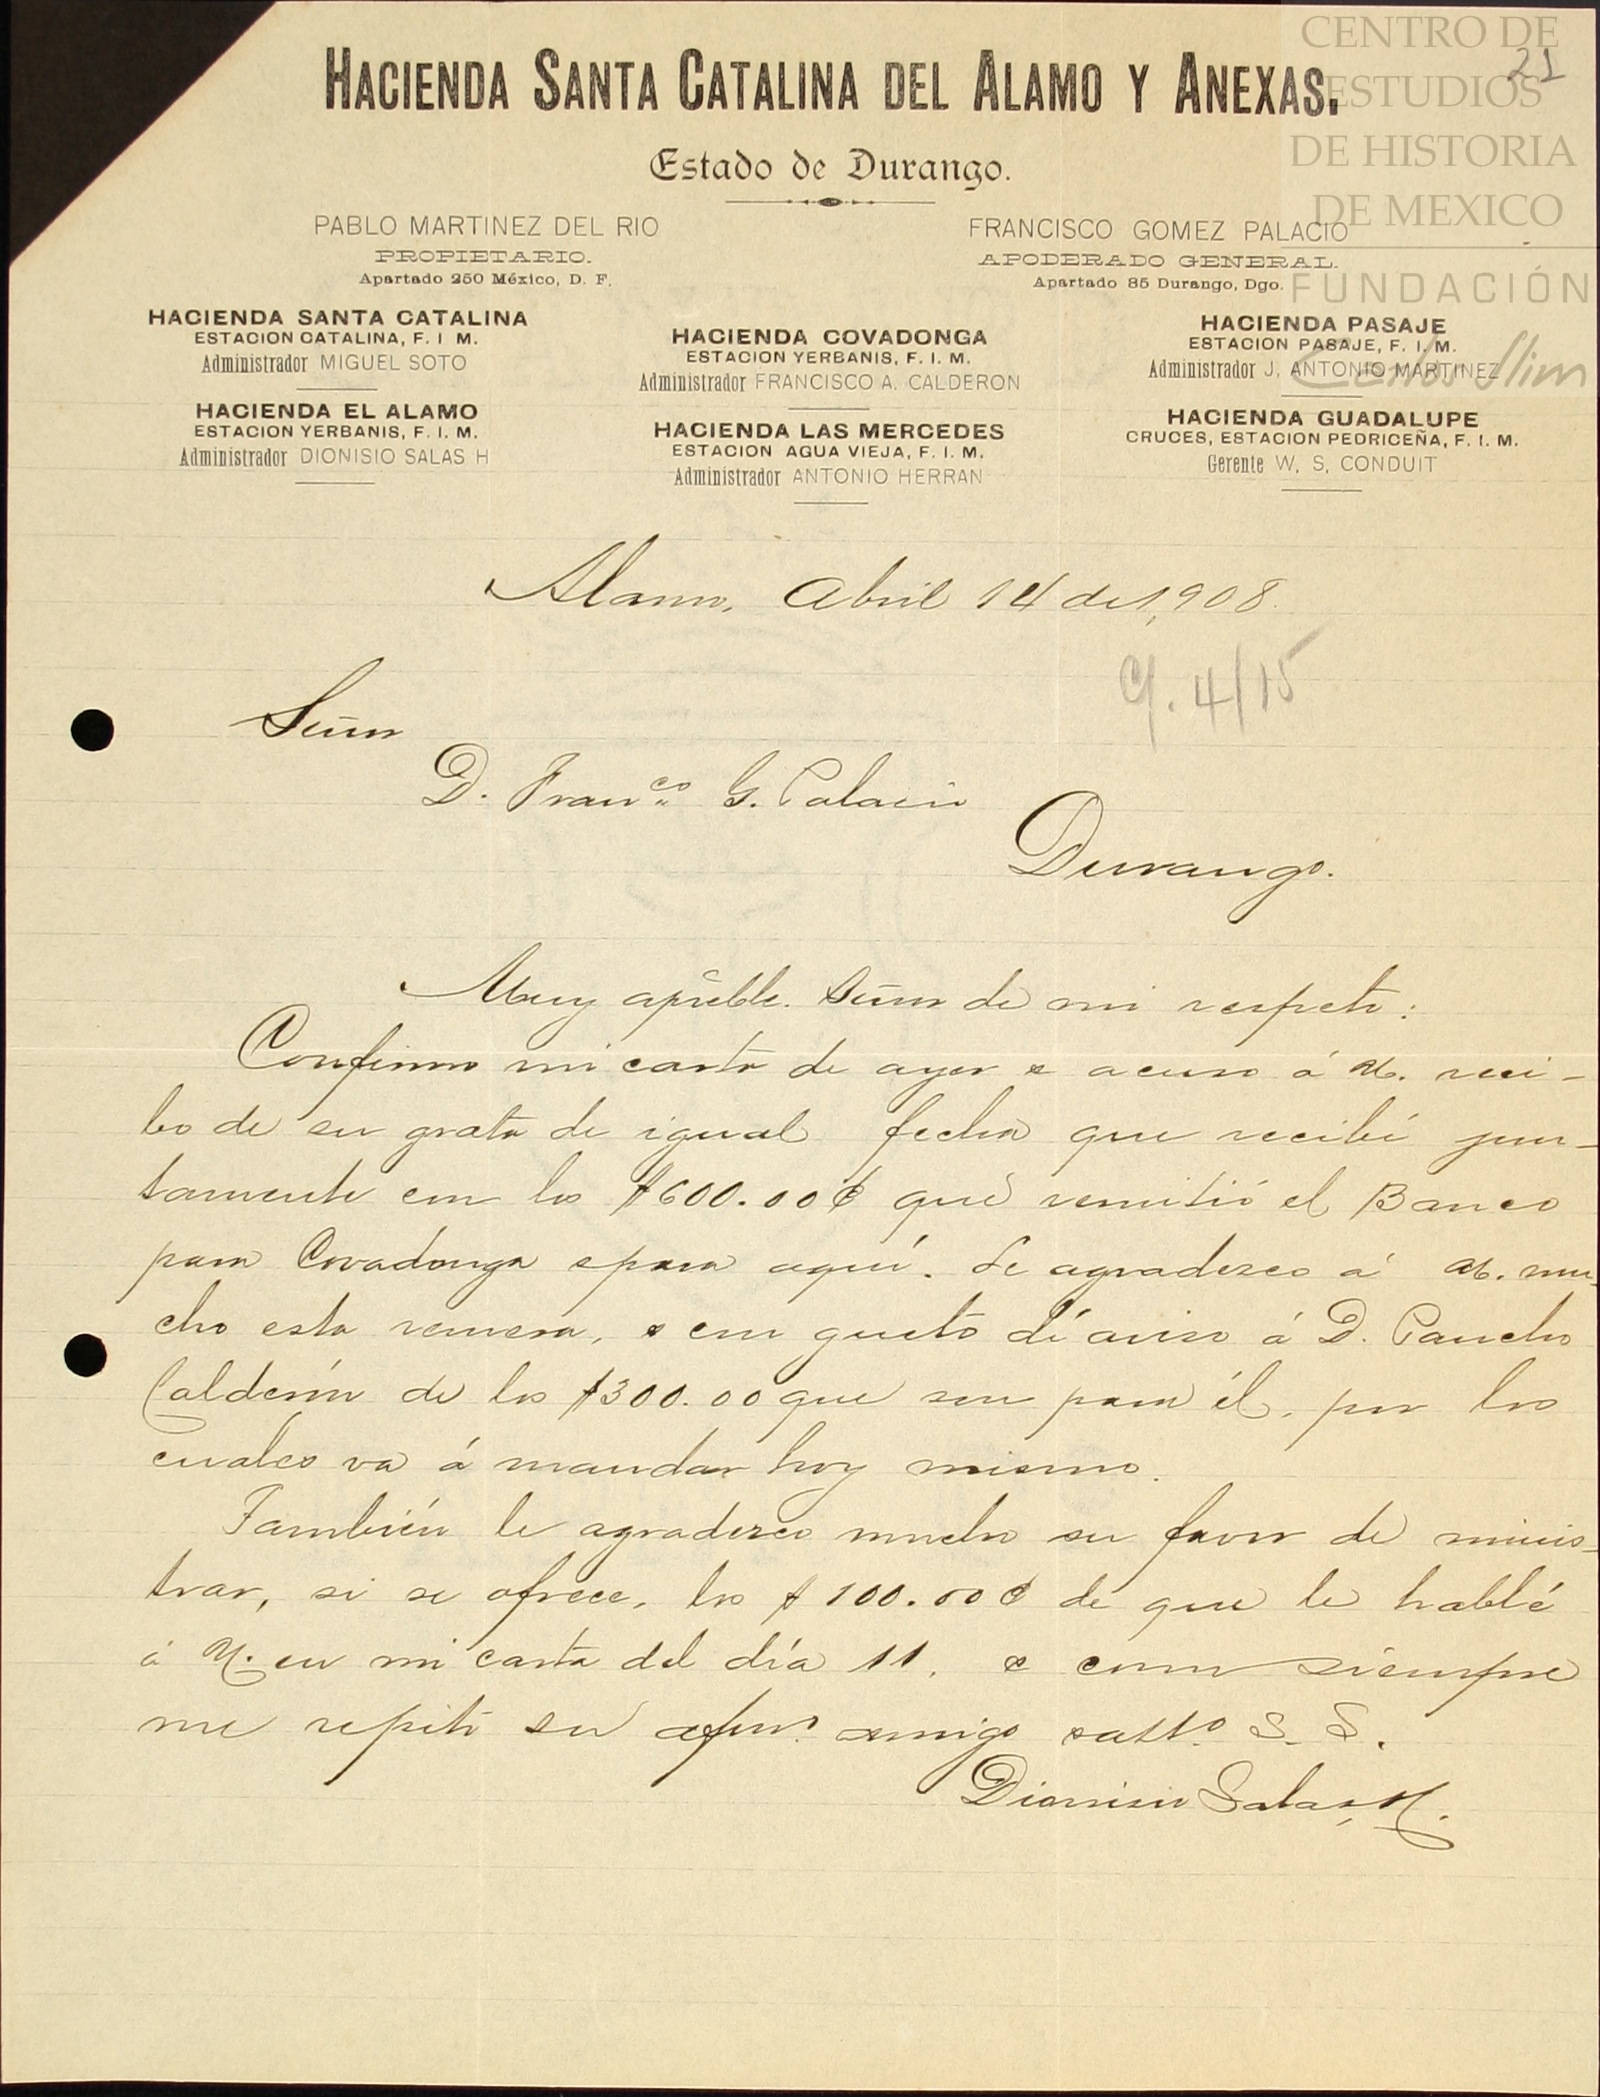 CENTRO DE
ESTUDIOS
DE HISTORIA
DE MEXICO
FUNDACIÓN
Carlos Slim
21
HACIENDA SANTA CATALINA DEL ALAMO Y ANEXAS.
Estado de Durango.
PABLO MARTINEZ DEL RIO
PROPIETARIO.
Apartado 250 México, D. F.
FRANCISCO GOMEZ PALACIO
APODERADO GENERAL.
Apartado 85 Durango, Dgo.
HACIENDA SANTA CATALINA
ESTACION CATALINA, F. I M.
Administrador MIGUEL SOTO
HACIENDA EL ALAMO
ESTACION YERBANIS, F. I. M.
Administrador DIONISIO SALAS H
HACIENDA COVADONGA
ESTACION YERBANIS, F. I. M.
Administrador FRANCISCO A. CALDERON
HACIENDA LAS MERCEDES
ESTACION AGUA VIEJA, F. I. M.
Administrador ANTONIO HERRAN
HACIENDA PASAJE
ESTACION PASAJE, F. I. M.
Administrador J. ANTONIO MARTINEZ
HACIENDA GUADALUPE
CRUCES, ESTACION PEDRICEÑA, F. I. M.
Gerente W. S. CONDUIT
Alamo, Abril 14 de 1,908.
C/. 4/15
Señor
D. Franco. G. Palacio
Durango.
Muy apreble. Señor de mi respeto:
Confirmo mi carta de ayer e acuso á U. reci-
bo de su grata de igual fecha que recibí jun-
tamente con los $600.00¢ que remitió el Banco
para Covadonga e para aquí. Le agradezco á U. mu-
cho esta remesa, e con gusto dí aviso á D. Pancho
Calderón de los $300.00 que son para él, por los
cuales va á mandar hoy mismo.
También le agradezco mucho su favor de minis-
trar, si se ofrece, los $100.00¢ de que le hablé
á U. en mi carta del día 11, e como siempre
me repito su afmo. amigo atto. S. S.
Dionisio Salas, H.